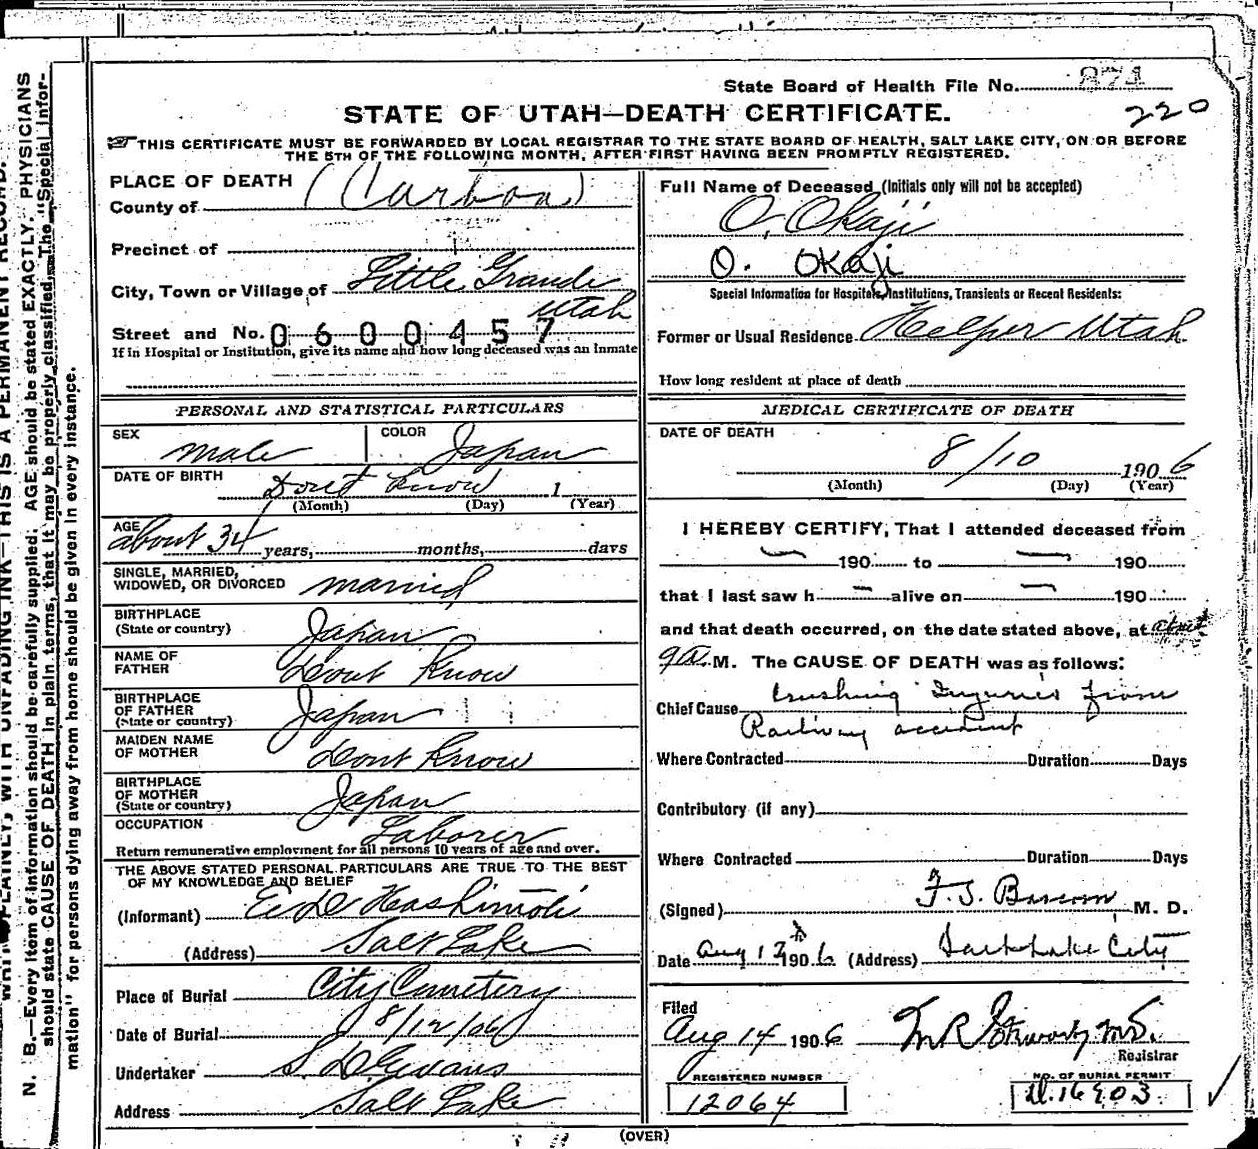 State Board of Health File No. 874
220
STATE OF UTAH—DEATH CERTIFICATE.
THIS CERTIFICATE MUST BE FORWARDED BY LOCAL REGISTRAR TO THE STATE BOARD OF HEALTH, SALT LAKE CITY, ON OR BEFORE
THE 5TH OF THE FOLLOWING MONTH, AFTER FIRST HAVING BEEN PROMPTLY REGISTERED.
PLACE OF DEATH
County of (Carbon)
Precinct of
City, Town or Village of Little Grande
Utah
Street and No. 0600457
If in Hospital or Institution, give its name and how long deceased was an Inmate
PERSONAL AND STATISTICAL PARTICULARS
SEX Male COLOR Japan
DATE OF BIRTH Dont Know 1
(Month) (Day) (Year)
AGE about 34 years, months, days
SINGLE, MARRIED,
WIDOWED, OR DIVORCED married
BIRTHPLACE
(State or country) Japan
NAME OF
FATHER Dont Know
BIRTHPLACE
OF FATHER
(State or country) Japan
MAIDEN NAME
OF MOTHER Dont Know
BIRTHPLACE
OF MOTHER
(State or country) Japan
OCCUPATION Laborer
Return remunerative employment for all persons 10 years of age and over.
THE ABOVE STATED PERSONAL PARTICULARS ARE TRUE TO THE BEST
OF MY KNOWLEDGE AND BELIEF
(Informant) E. D. Hashimoto
(Address) Salt Lake
Place of Burial City Cemetery
Date of Burial 8/12/06
Undertaker S. D. Evans
Address Salt Lake
Full Name of Deceased (Initials only will not be accepted)
O. Okaji
O. Okaji
Special Information for Hospitals, Institutions, Transients or Recent Residents:
Former or Usual Residence Helper Utah
How long resident at place of death
MEDICAL CERTIFICATE OF DEATH
DATE OF DEATH
8/10 1906
(Month) (Day) (Year)
I HEREBY CERTIFY, That I attended deceased from
— 190 to — 190
that I last saw h — alive on — 190
and that death occurred, on the date stated above, at about
9 a. M. The CAUSE OF DEATH was as follows:
Chief Cause Crushing Injuries from
Railway accident
Where Contracted Duration Days
Contributory (if any)
Where Contracted Duration Days
(Signed) F. S. Bascom, M. D.
Date Aug 13th 1906 (Address) Salt Lake City
Filed
Aug 14 1906 M.D.
Registrar
REGISTERED NUMBER
12064
NO. OF BURIAL PERMIT
16903
(OVER)
N. B.—Every item of information should be carefully supplied. AGE should be stated EXACTLY. PHYSICIANS
should state CAUSE OF DEATH in plain terms, that it may be properly classified. The "Special Infor-
mation" for persons dying away from home should be given in every instance.
WRITE PLAINLY, WITH UNFADING INK—THIS IS A PERMANENT RECORD.